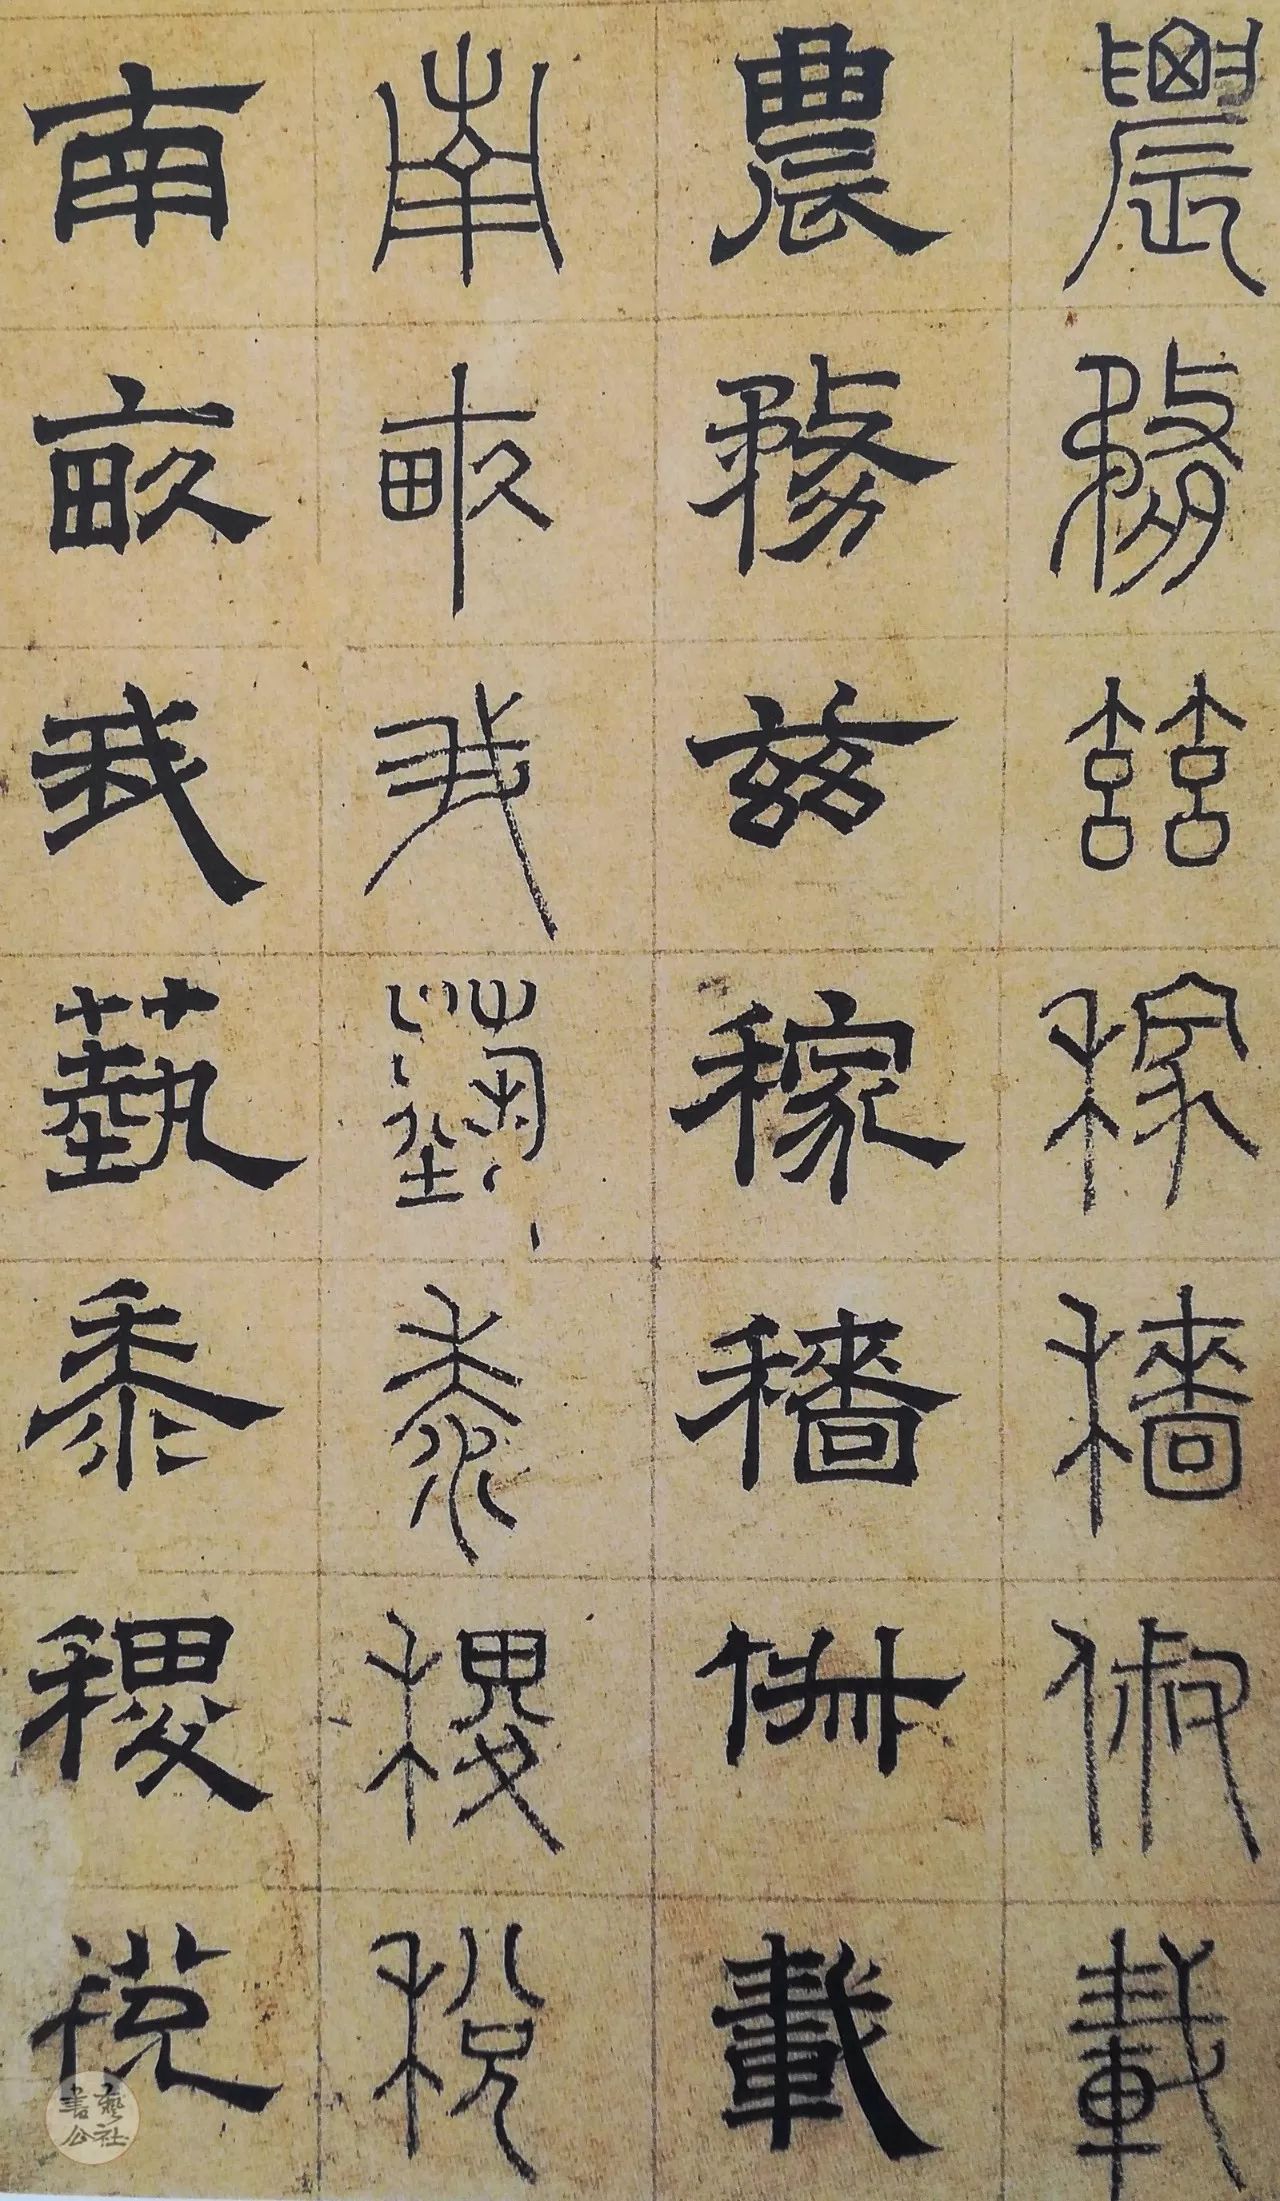 農務茲稼穡俶載
農務茲稼穡俶載
南畝我藝黍稷稅
南畝我藝黍稷稅
書藝公社